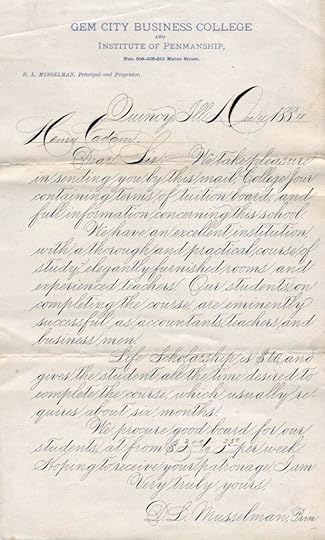 GEM CITY BUSINESS COLLEGE
AND
INSTITUTE OF PENMANSHIP,
Nos. 506-508-510 Maine Street.
D. L. MUSSELMAN, Principal and Proprietor.
Quincy Ill. 1884
Henry
Dear Sir: We take pleasure
in sending you by this mail, College Jour
containing terms of tuition board, and
full information concerning this school.
We have an excellent institution
with a thorough and practical course of
study, elegantly furnished rooms and
experienced teachers. Our students, on
completing the course, are eminently
successful as accountants, teachers and
business men.
Life Scholarship is and
gives the student all the time desired to
complete the course, which usually re-
quires about six months.
We procure good board for our
students, at from $3.00 to 3.50 per week.
Hoping to receive your patronage, I am
Very truly yours,
D. L. Musselman, Prin